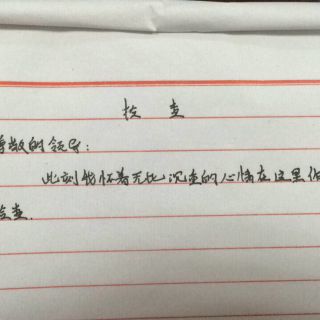 检 查
尊敬的领导:
此刻我怀着无比沉重的心情在这里做
检查.